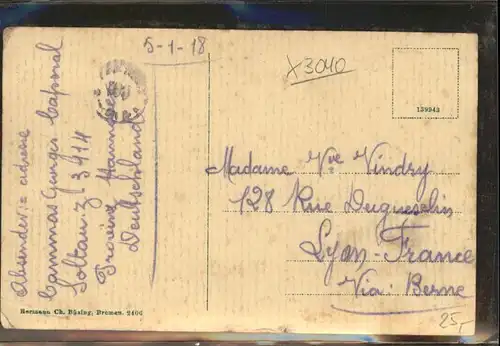 5-1-18
X3040
139943
Absender's adresse
Cammas Georges Caporal
Soltau Z 3914
Provinz Hannover
Deutschland
Madame Vve Vindry
128 Rue Duguesclin
Lyon-France
Via: Berne
Hermann Ch. Büsing, Bremen. 2406
25,-